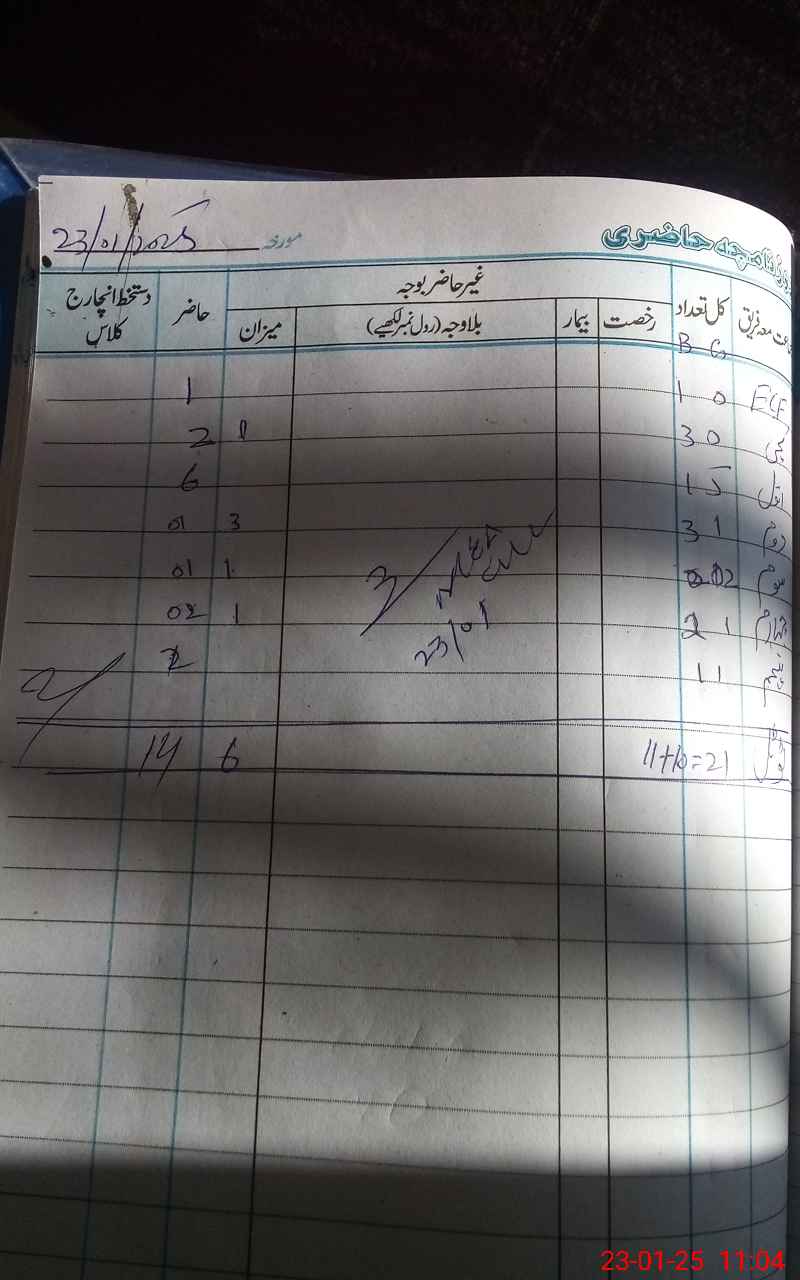 روزنامچہ حاضری مورخہ 23/01/2025
جماعت معہ فریق کل تعداد غیر حاضر بوجہ حاضر دستخط انچارج کلاس
رخصت بیمار بلاوجہ (رول نمبر لکھیے) میزان
B G
ECE 1 0 1
کچی 3 0 1 2
اول 1 5 6
دوم 3 1 3 01
سوم 02 1 01
چہارم 2 1 1 02
پنجم 1 1 2
MEA
23/01
ٹوٹل 11+10=21 6 14
23-01-25 11:04